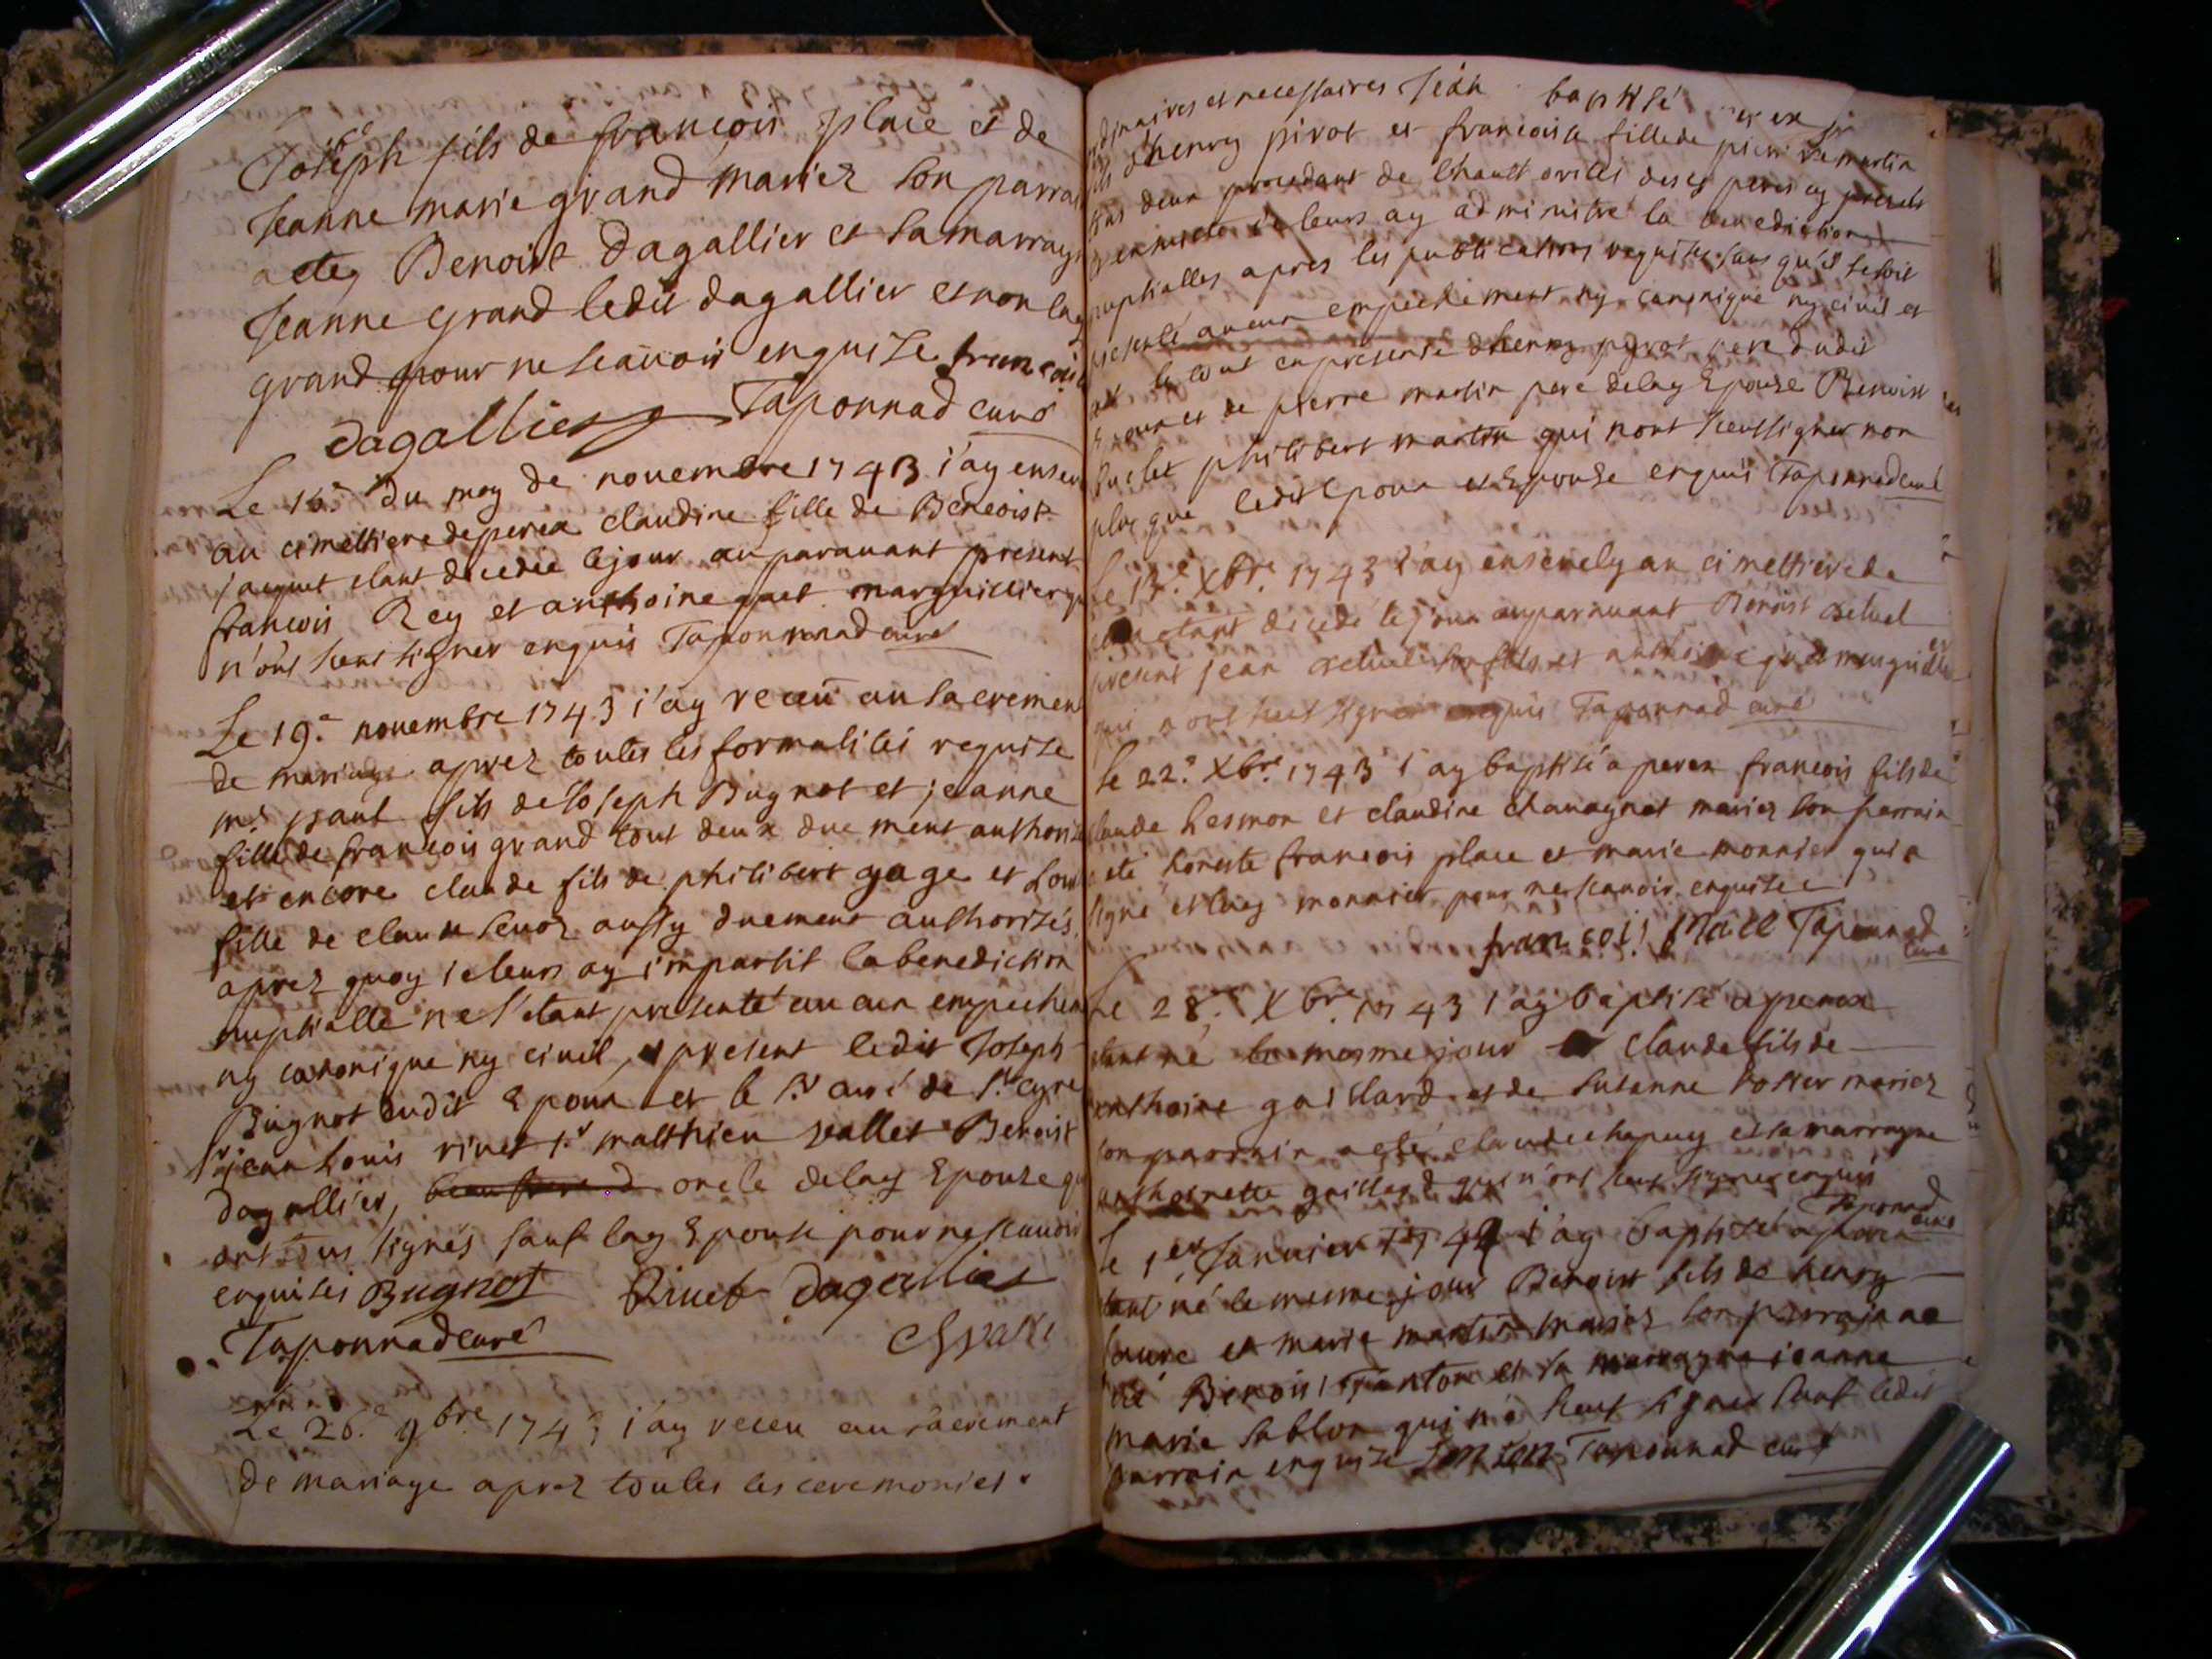 Joseph fils de francois place et de
Jeanne marie girand mariez son parrai
a etez Benoist Dagallier et sa marrayn
Jeanne grand ledit dagallier et non lay
grand pour ne scauoir enquise francois
dagallier Taponnad curé
Le 16e du moy de nouembre 1743 i'ay enseu
au cimettiere de perex claudine fille de Beneoist
Jacquet etant decedée le jour auparauant present
francois Rey et anthoine guet marguillier qu
n'ont sceut signer enquis Taponnad curé
Le 19e nouembre 1743 i'ay receu au sacremen
de mariage aprez toutes les formalités requise
paul fils de Joseph Bugnot et jeanne
fille de francois grand tout deux duement authori
et encore claude fils de philibert gage et
fille de claude aussy duement authorisés
aprez quoy ie leurs ay impartit la benediction
nuptialle ne s'etant presenté aucun empechem
ny canonique ny ciuil, present ledit Joseph
Bugnot dudit Epoux et le sr curé de st cyre
sr jean Louis riuet sr matthieu Benoist
dagallier, oncle de lay Epouze qu
ont tous signés sauf lay Epouse pour ne scauoir
enquises Bugnot Riuet Dagallier
Taponnad curé
Le 26e 9bre 1743 i'ay receu au sacrement
de mariage aprez toutes les ceremonies
et necessaires Jean baptiste
d'henry pirot et francoise fille de pierre martin
tous deux procedant de l'hautorités de ses peres cy presents
ie leurs ay administré la benediction
nuptialles apres les publications requises sans qu'il se soit
presenté aucun empechement ny canonique ny ciuil et
le tout en presence d'henry pyrot pere dudit
Epoux et de pierre martin pere de lay Epouze Benoist
philibert martin qui n'ont sceut signer non
plus que ledit Epoux et Epouse enquis Taponnad curé
Le Xbre 1743 i'ay enseuely au cimettiere de
etant decedé le jour auparauant Benoist
present jean son fils et anthoine guet marguillier
qui n'ont sceut signer enquis Taponnad curé
Le 22e Xbre 1743 i'ay baptisé a perex francois fils de
claude Lesmon et claudine chauagnet mariez son parrain
a eté honeste francois place et marie monnier qui a
signé et lay monnier pour ne scauoir enquise
francois place Taponnad
curé
Le 28e Xbre 1743 i'ay baptisé a perex
etant né le mesme jour claude fils de
anthoine gaillard et de Susanne mariez
son parrain a eté claude chapuy et sa marrayne
anthoinette gaillard qui n'ont sceut signer enquis
Taponnad
curé
Le 1er Januier 1744 i'ay baptisé a perex
etant né le mesme jour Benoist fils de henry
et marie martin mariez son parrain a
eté Benoist et sa marrayne jeanne
marie sablon qui n'a sceut signer sauf ledit
parrain enquise Taponnad curé